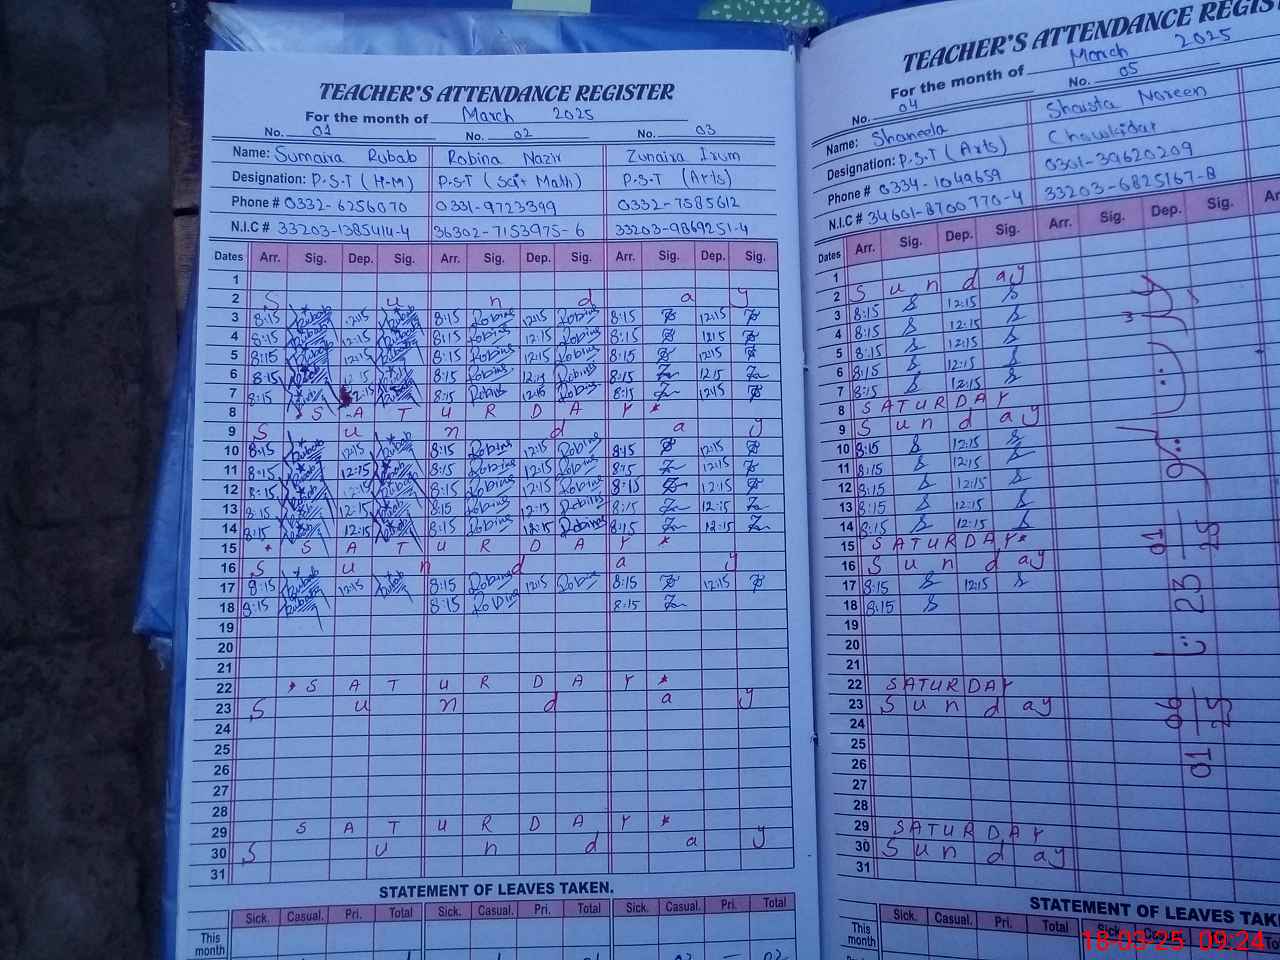 TEACHER'S ATTENDANCE REGISTER
For the month of March 2025
No. 01 No. 02 No. 03
Name: Sumaira Rubab Robina Nazir Zunaira Irum
Designation: P.S.T (H-M) P.S.T (Sci+ Math) P.S.T (Arts)
Phone # 0332-6256070 0331-9723399 0332-7585612
N.I.C # 33203-1385414-4 36302-7153975-6 33203-9869251-4
Dates Arr. Sig. Dep. Sig. Arr. Sig. Dep. Sig. Arr. Sig. Dep. Sig.
1
2 S u n d a y
3 8:15 Rubab 12:15 Rubab 8:15 Robina 12:15 Robina 8:15 12:15
4 8:15 Rubab 12:15 Rubab 8:15 Robina 12:15 Robina 8:15 12:15
5 8:15 Rubab 12:15 Rubab 8:15 Robina 12:15 Robina 8:15 12:15
6 8:15 Rubab 12:15 8:15 Robina 12:15 Robina 8:15 12:15
7 8:15 Rubab 12:15 Rubab 8:15 Robina 12:15 Robina 8:15 12:15
8 * S A T U R D A Y *
9 S u n d a y
10 8:15 Rubab 12:15 Rubab 8:15 Robina 12:15 Robina 8:15 12:15
11 8:15 Rubab 12:15 Rubab 8:15 Robina 12:15 Robina 8:15 12:15
12 8:15 Rubab 12:15 Rubab 8:15 Robina 12:15 Robina 8:15 12:15
13 8:15 Rubab 12:15 Rubab 8:15 Robina 12:15 Robina 8:15 12:15
14 8:15 Rubab 12:15 Rubab 8:15 Robina 12:15 Robina 8:15 12:15
15 * S A T U R D A Y *
16 S u n d a y
17 8:15 Rubab 12:15 Rubab 8:15 Robina 12:15 Robina 8:15 12:15
18 8:15 Rubab 8:15 Robina 8:15
19
20
21
22 * S A T U R D A Y *
23 S u n d a y
24
25
26
27
28
29 S A T U R D A Y *
30 S u n d a y
31
STATEMENT OF LEAVES TAKEN.
Sick. Casual. Pri. Total Sick. Casual. Pri. Total Sick. Casual. Pri. Total
This month
TEACHER'S ATTENDANCE
For the month of March 2025
No. 04 No. 05
Name: Shaneela Shaista Noreen
Designation: P.S.T (Arts) Chowkidar
Phone # 0334-1049659 0301-39620209
N.I.C # 34601-8700770-4 33203-6825167-8
Dates Arr. Sig. Dep. Sig. Arr. Sig. Dep. Sig.
1
2 S u n d a y
3 8:15 12:15
4 8:15 12:15
5 8:15 12:15
6 8:15 12:15
7 8:15 12:15
8 S A T U R D A Y
9 S u n d a y
10 8:15 12:15
11 8:15 12:15
12 8:15 12:15
13 8:15 12:15
14 8:15 12:15
15 S A T U R D A Y *
16 S u n d a y
17 8:15 12:15
18 8:15
19
20
21
22 S A T U R D A Y
23 S u n d a y
24
25
26
27
28
29 S A T U R D A Y
30 S u n d a y
31
01 06 25 23 01 25
STATEMENT OF LEAVES
Sick. Casual. Pri. Total Sick.
This month
18-03-25 09:24